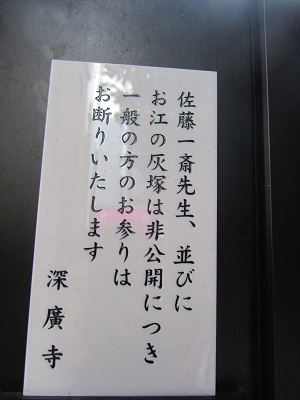 佐藤一斎先生、並びに
お江の灰塚は非公開につき
一般の方のお参りは
お断りいたします
深廣寺